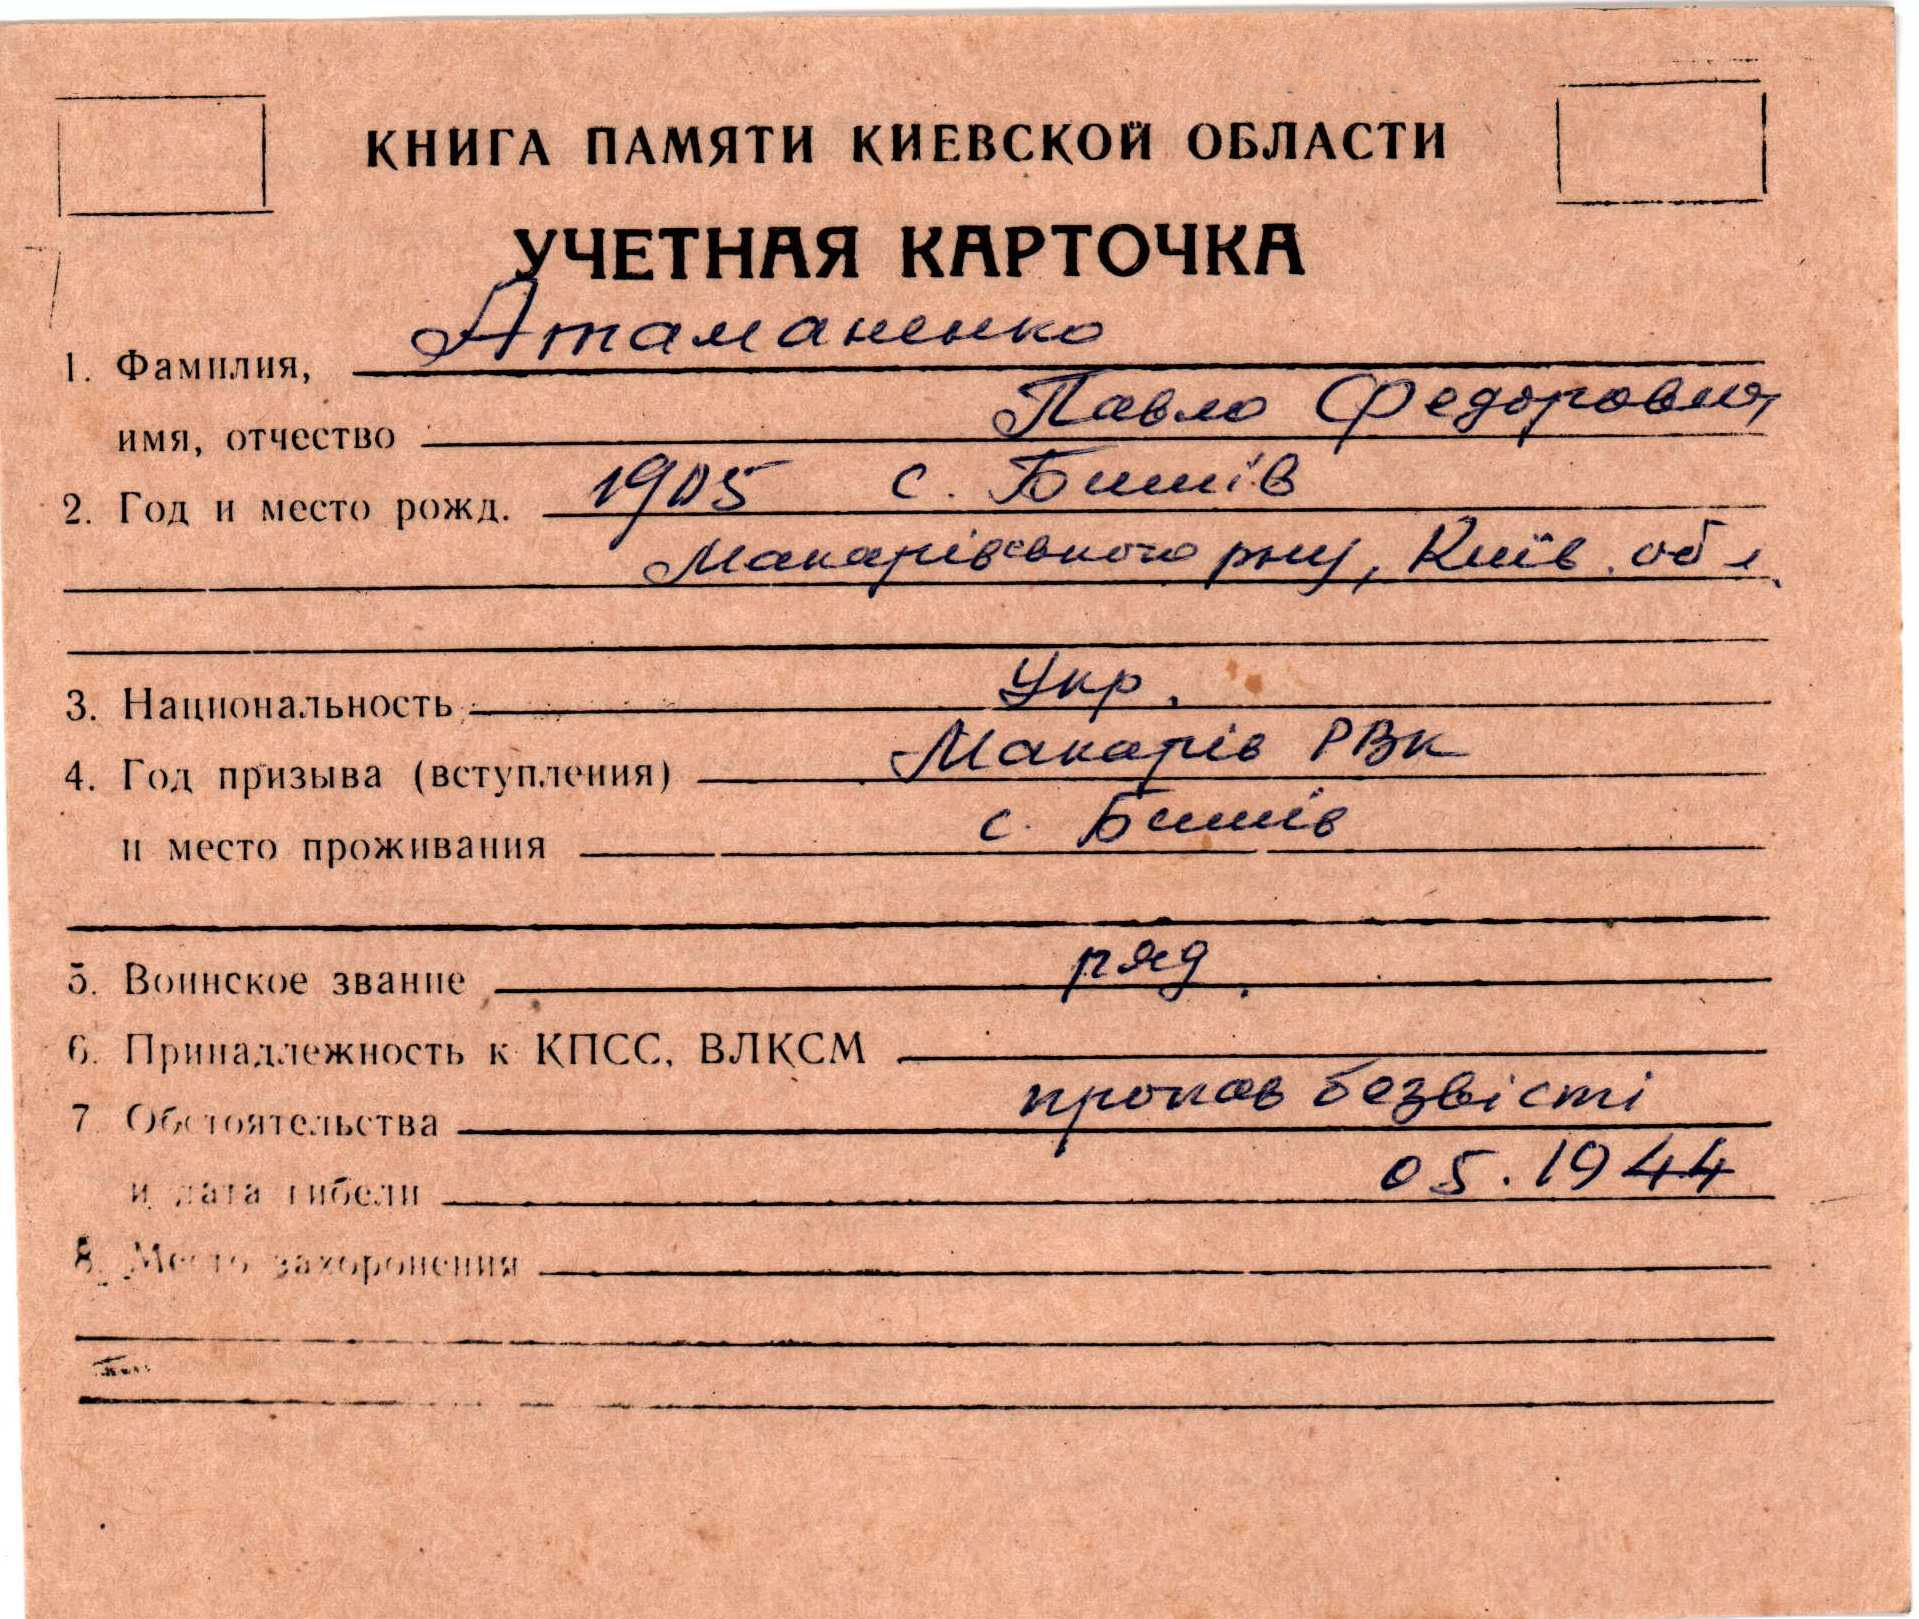 КНИГА ПАМЯТИ КИЕВСКОЙ ОБЛАСТИ
УЧЕТНАЯ КАРТОЧКА
1. Фамилия, Атаманенко
имя, отчество Павло Федорович
2. Год и место рожд. 1905 с. Бишів
Макарівського р-ну, Київ. обл.
3. Национальность Укр.
4. Год призыва (вступления) Макарів РВК
и место проживания с. Бишів
5. Воинское звание ряд.
6. Принадлежность к КПСС, ВЛКСМ
7. Обстоятельства пропав безвісті
и дата гибели 05.1944
8. Место захоронения